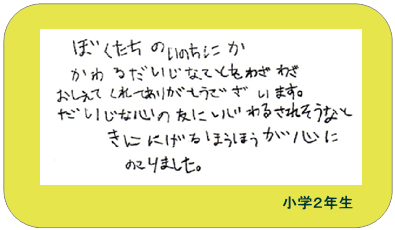 ぼくたちのいのちにか
かわるだいじなことをわざわざ
おしえてくれてありがとうございます。
だいじな心の友にいじわるされそうなと
きににげるほうほうが心に
のこりました。
小学2年生